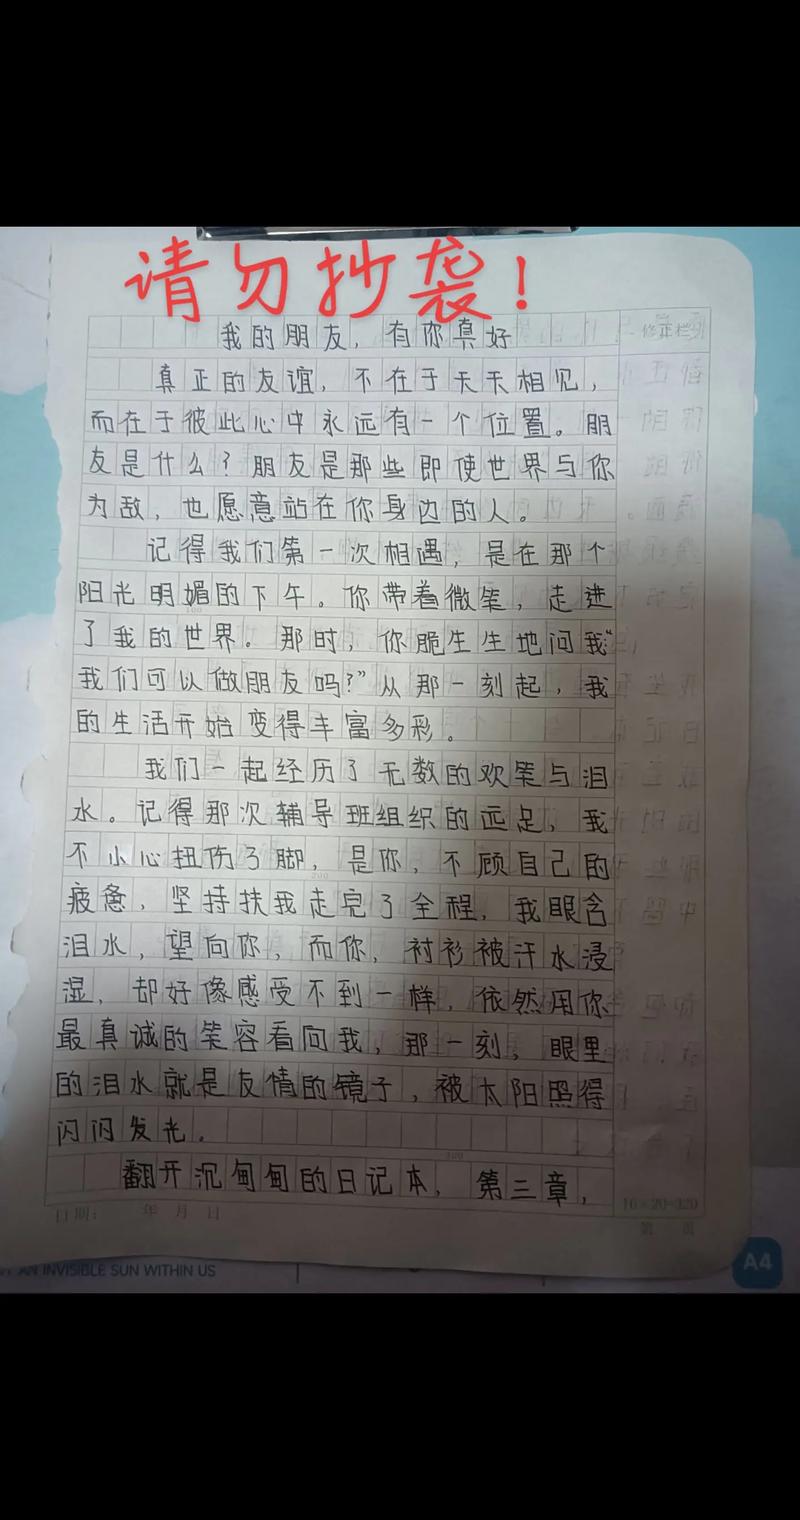 请勿抄袭!
我的朋友，有你真好
修正栏
真正的友谊，不在于天天相见，
而在于彼此心中永远有一个位置。朋
友是什么？朋友是那些即使世界与你
为敌，也愿意站在你身边的人。
记得我们第一次相遇，是在那个
阳光明媚的下午。你带着微笑，走进
了我的世界。那时，你脆生生地问我“
我们可以做朋友吗?”从那一刻起，我
的生活开始变得丰富多彩。
我们一起经历了无数的欢笑与泪
水。记得那次辅导班组织的远足，我
不小心扭伤了脚，是你，不顾自己的
疲惫，坚持扶我走完了全程，我眼含
泪水，望向你，而你，衬衫被汗水浸
湿，却好像感受不到一样，依然用你
最真诚的笑容看向我，那一刻，眼里
的泪水就是友情的镜子，被太阳照得
闪闪发光。
翻开沉甸甸的日记本，第三章，
16×20=320
日期： 年 月 日
第 页
AN INVISIBLE SUN WITHIN US
A4